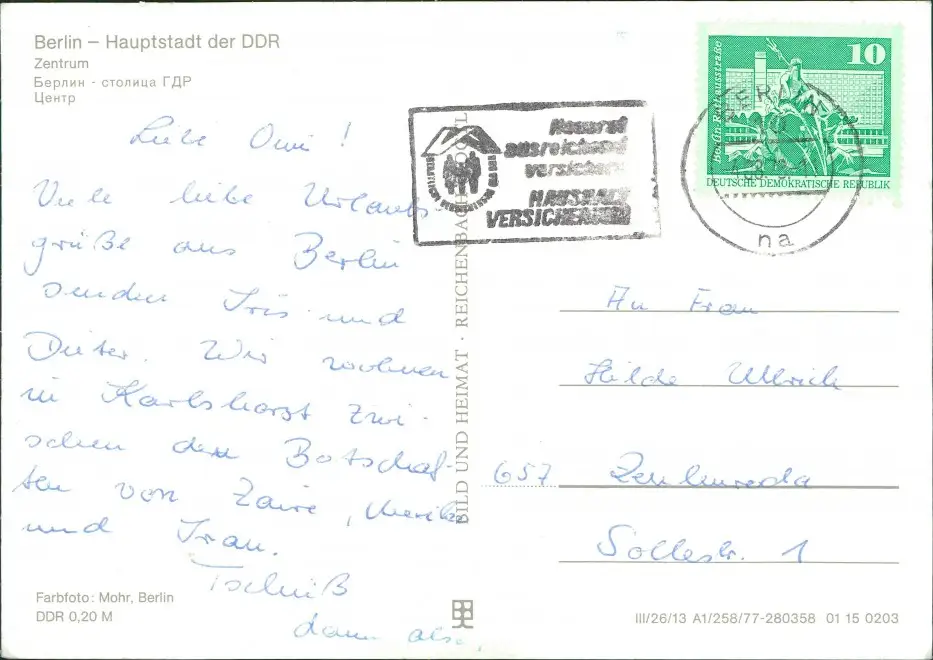 Berlin – Hauptstadt der DDR
Zentrum
Берлин - столица ГДР
Центр
Liebe Omi!
Viele liebe Urlaubs-
grüße aus Berlin
senden Iris und
Dieter. Wir wohnen
in Karlshorst zwi-
schen den Botschaf-
ten von Zaire, Mexiko
und Iran.
Tschüß
dann also,
Farbfoto: Mohr, Berlin
DDR 0,20 M
BILD UND HEIMAT · REICHENBACH
ausreichend
versichert
HAUSHALT
VERSICHERUNG
10
Berlin Rathausstraße
DEUTSCHE DEMOKRATISCHE REPUBLIK
BERLIN
na
An Frau
Hilde Ullrich
657 Zeulenroda
1
III/26/13 A1/258/77-280358 01 15 0203